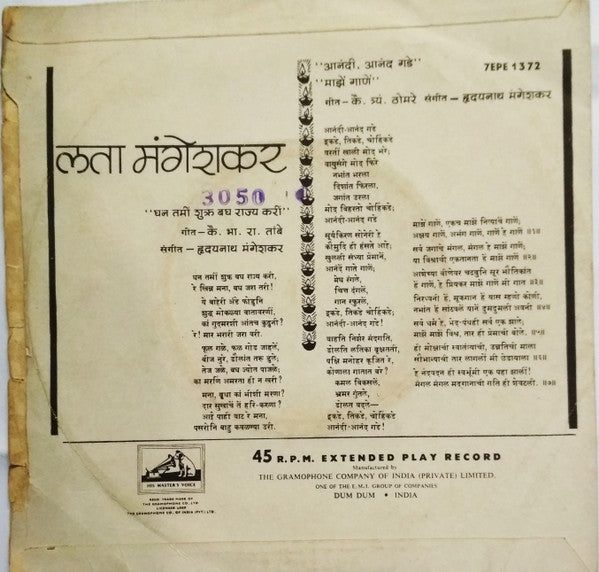 लता मंगेशकर
3050
"घन तमीं शुक्र बघ राज्य करी"
गीत - कै. भा. रा. तांबे
संगीत - हृदयनाथ मंगेशकर
घन तमीं शुक्र बघ राज्य करी,
रे खिन्न मना, बघ जरा तरी!
ये बाहेरी अंडे फोडुनि
शुद्ध मोकळ्या वातावरणीं,
कां गुदमरशी आंतच कुढुनी?
रे! मार भरारी जरा वरी.
फूल गळे, फळ गोड जाहलें,
बीज नुरे, डौलांत तरू डुले;
तेज जळे, बघ ज्योत पाजळे;
का मरणि अमरता ही न खरी?
मना, वृथा कां भीशी मरणा?
दार सुखाचें तें हरि-करुणा?
आई पाही वाट रे मना,
पसरोनि बाहु कवळण्या उरी.
"आनंदी, आनंद गडे"
"माझें गाणें"
7EPE 1372
गीत - कै. त्र्यं. ठोमरे संगीत - हृदयनाथ मंगेशकर
आनंदी-आनंद गडे
इकडे, तिकडे, चोहिंकडे
वरतीं खालीं मोद भरे;
वायुसंगे मोद फिरे
नभांत भरला
दिशांत फिरला,
जगांत उरला
मोद विहरतो चोहिंकडे;
आनंदी-आनंद गडे
सूर्यकिरण सोनेरी हे
कौमुदि ही हंसते आहे;
खुलली संध्या प्रेमानें,
आनंदें गाते गाणें;
मेघ रंगले,
चित्त दंगले,
गान स्फुरलें,
इकडे, तिकडे, चोहिंकडे;
आनंदी-आनंद गडे!
वाहति निर्झर मंदगति,
डोलति लतिका वृक्षतती,
पक्षि मनोहर कूजित रे,
कोणाला गातात बरे?
कमल विकसलें,
भ्रमर गुंतले,
डोलत वदले—
इकडे, तिकडे, चोहिंकडे
आनंदी-आनंद गडे!
माझें गाणें, एकच माझें नित्याचें गाणें;
अक्षय गाणें, अभंग गाणें, गाणें हें गाणें ॥१॥
सर्व जगाचें मंगल, मंगल हें माझें गाणें;
या विश्वाची एकतानता हें माझें गाणें ॥२॥
आशेच्या वीणेवर चढवुनि सूर भीतिकांत
हें गाणें, हे प्रियकर माझें गाणें मी गात ॥३॥
निरध्वनी हें, मूकगान हें यास म्हणो कोणी,
नभांत हें सांठवलें यानें दुमदुमली अवनी ॥४॥
सर्व धर्म हे, भेद-पंथही सर्व एक झाले;
माझें माझें विश्व, तार ही प्रेमाची बोले. ॥५॥
ही मोक्षाची स्वातंत्र्याची, उन्नतिची माला
सौभाग्याची तार लागली मी छेडायाला ॥६॥
हे नंदनवन ही स्वर्भूमी एक पहा झाली!
मंगल मंगल मद्गानाची गति ही शेवटली. ॥७॥
HIS MASTER'S VOICE
REGD. TRADE MARK OF
THE GRAMOPHONE CO. LTD.
LICENSED USER
THE GRAMOPHONE CO. OF INDIA (PVT.) LTD.
45 R.P.M. EXTENDED PLAY RECORD
Manufactured by
THE GRAMOPHONE COMPANY OF INDIA (PRIVATE) LIMITED.
ONE OF THE E.M.I. GROUP OF COMPANIES
DUM DUM • INDIA